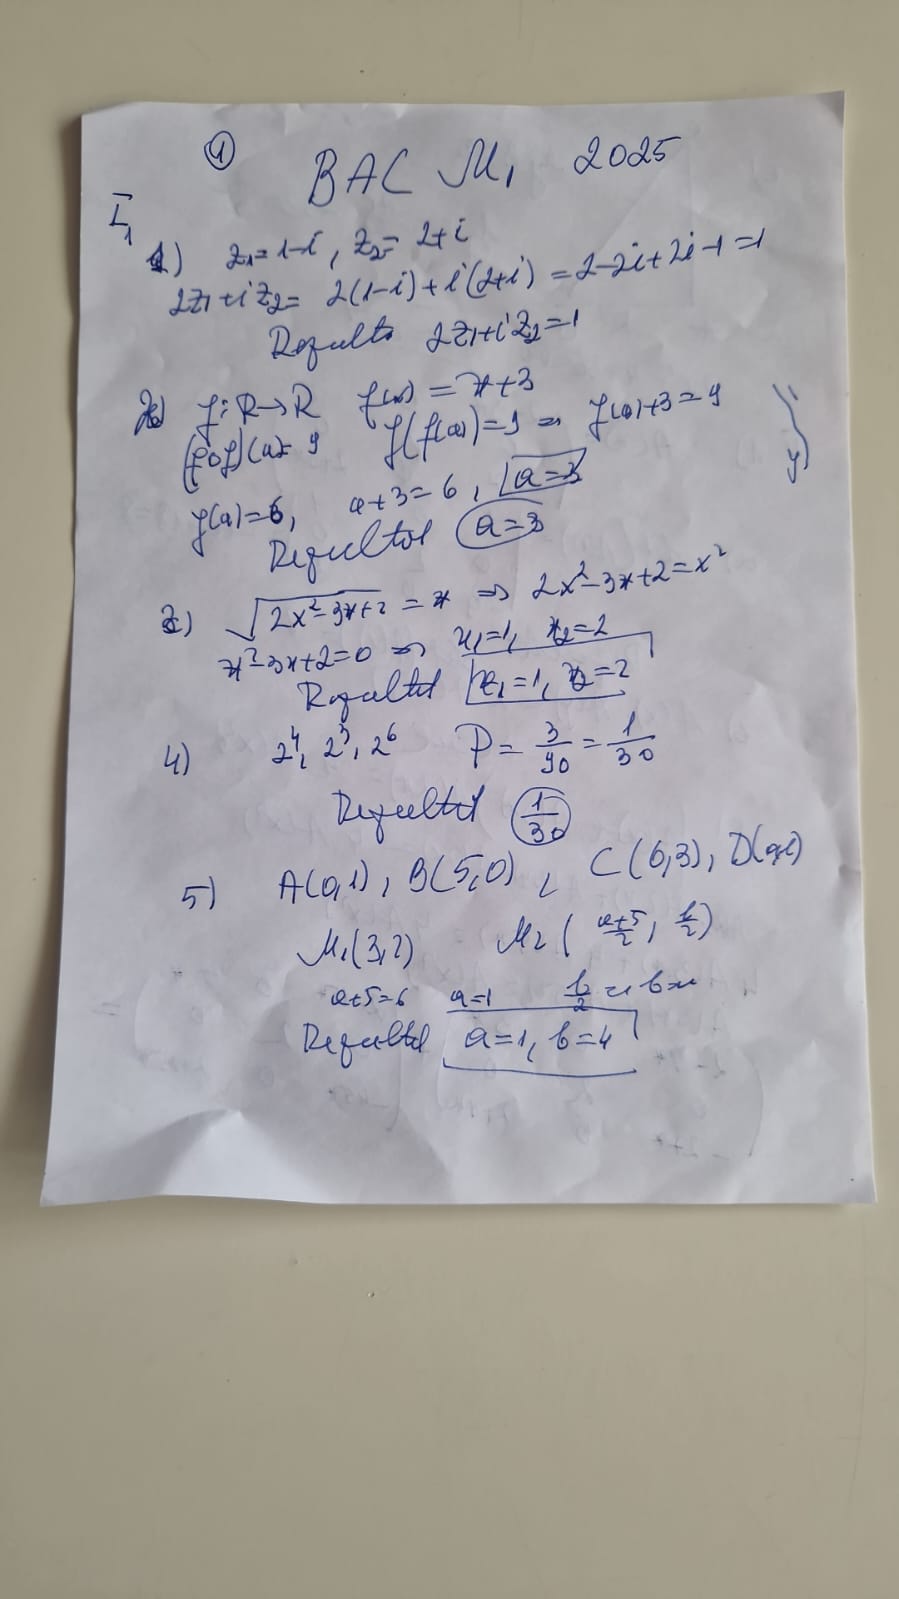 1
BAC M1 2025
I1
1) z1=1-i, z2= 2+i
2z1+iz2= 2(1-i)+i(2+i) =2-2i+2i-1=1
Rezulta 2z1+iz2=1
2) f:R→R f(x) = x+3
(fof)(a)= 9 f(f(a))=9 ⇒ f(a)+3=9
f(a)=6, a+3=6, a=3
Rezultă a=3
3) √2x²-3x+2 = x ⇒ 2x²-3x+2=x²
x²-3x+2=0 ⇒ x1=1, x2=2
Rezultă x1=1, x2=2
4) 2⁴, 2⁵, 2⁶ P= 3/90 = 1/30
Rezultă 1/30
5) A(0,1), B(5,0), C(6,3), D(a,b)
M1(3,2) M2 ( a+5/2, b/2)
a+5=6 a=1 b/2
Rezultă a=1, b=4